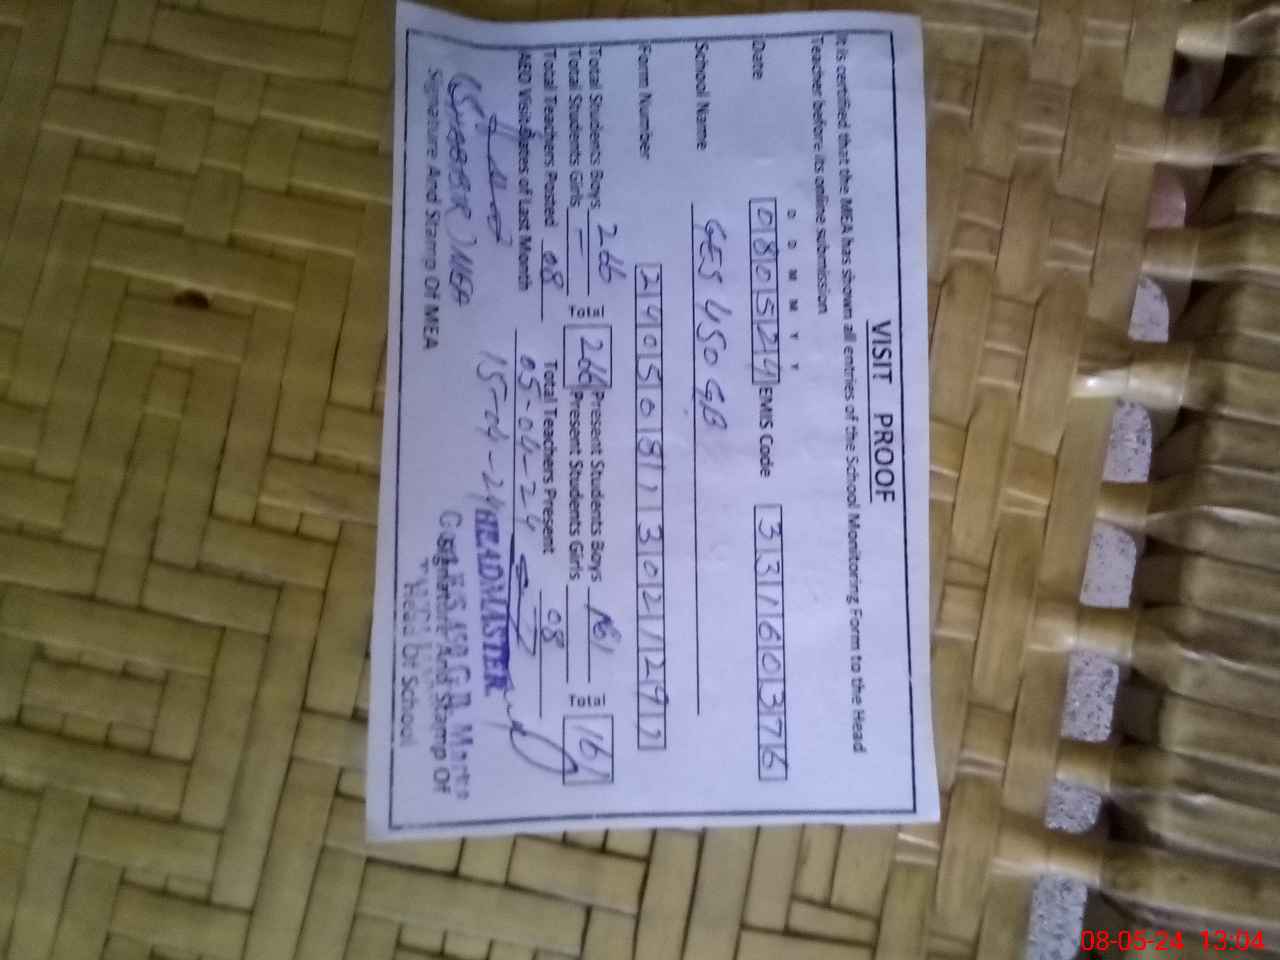 VISIT PROOF
It is certified that the MEA has shown all entries of the School Monitoring Form to the Head
Teacher before its online submission
D D M M Y Y
Date 080524 EMIS Code 33160376
School Name GES 450 GB
Form Number
Total Students Boys 266 266 Present Students Boys 161 161
Total Students Girls - Present Students Girls
Total Teachers Posted 08 Total Teachers Present 08
AEO Visit Dates of Last Month 05-04-24
15-04-24
(SHABBIR) MEA
HEADMASTER
Signature And Stamp Of MEA
Signature And Stamp Of
Head Of School
08-05-24 13:04